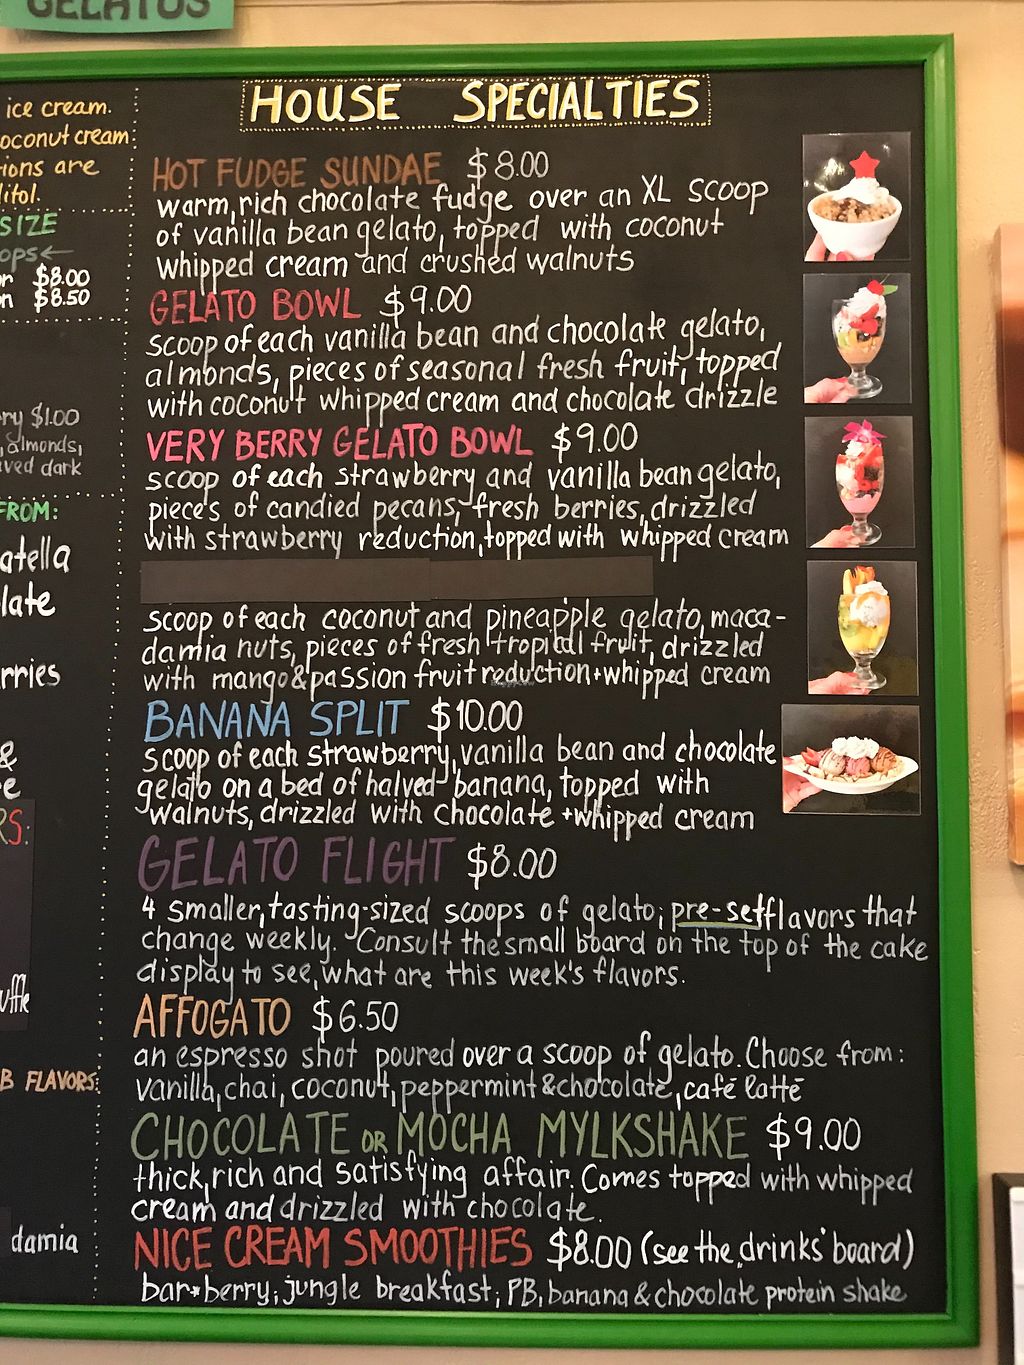 GELATOS
ice cream.
oconut cream
ions are
litol.
SIZE
ops←
or $8.00
n $8.50
ry $1.00
, almonds,
ved dark
FROM:
atella
late
rries
&
e
RS:
uffle
B FLAVORS:
damia
HOUSE SPECIALTIES
HOT FUDGE SUNDAE $8.00
warm, rich chocolate fudge over an XL scoop
of vanilla bean gelato, topped with coconut
whipped cream and crushed walnuts
GELATO BOWL $9.00
scoop of each vanilla bean and chocolate gelato,
almonds, pieces of seasonal fresh fruit, topped
with coconut whipped cream and chocolate drizzle
VERY BERRY GELATO BOWL $9.00
scoop of each strawberry and vanilla bean gelato,
pieces of candied pecans, fresh berries, drizzled
with strawberry reduction, topped with whipped cream
scoop of each coconut and pineapple gelato, maca-
damia nuts, pieces of fresh tropical fruit, drizzled
with mango & passion fruit reduction + whipped cream
BANANA SPLIT $10.00
scoop of each strawberry, vanilla bean and chocolate
gelato on a bed of halved banana, topped with
walnuts, drizzled with chocolate + whipped cream
GELATO FLIGHT $8.00
4 smaller, tasting-sized scoops of gelato; pre-set flavors that
change weekly. Consult the small board on the top of the cake
display to see, what are this week's flavors.
AFFOGATO $6.50
an espresso shot poured over a scoop of gelato. Choose from:
vanilla, chai, coconut, peppermint & chocolate, café latté
CHOCOLATE OR MOCHA MYLKSHAKE $9.00
thick, rich and satisfying affair. Comes topped with whipped
cream and drizzled with chocolate.
NICE CREAM SMOOTHIES $8.00 (see the drinks' board)
bar*berry; jungle breakfast; PB, banana & chocolate protein shake